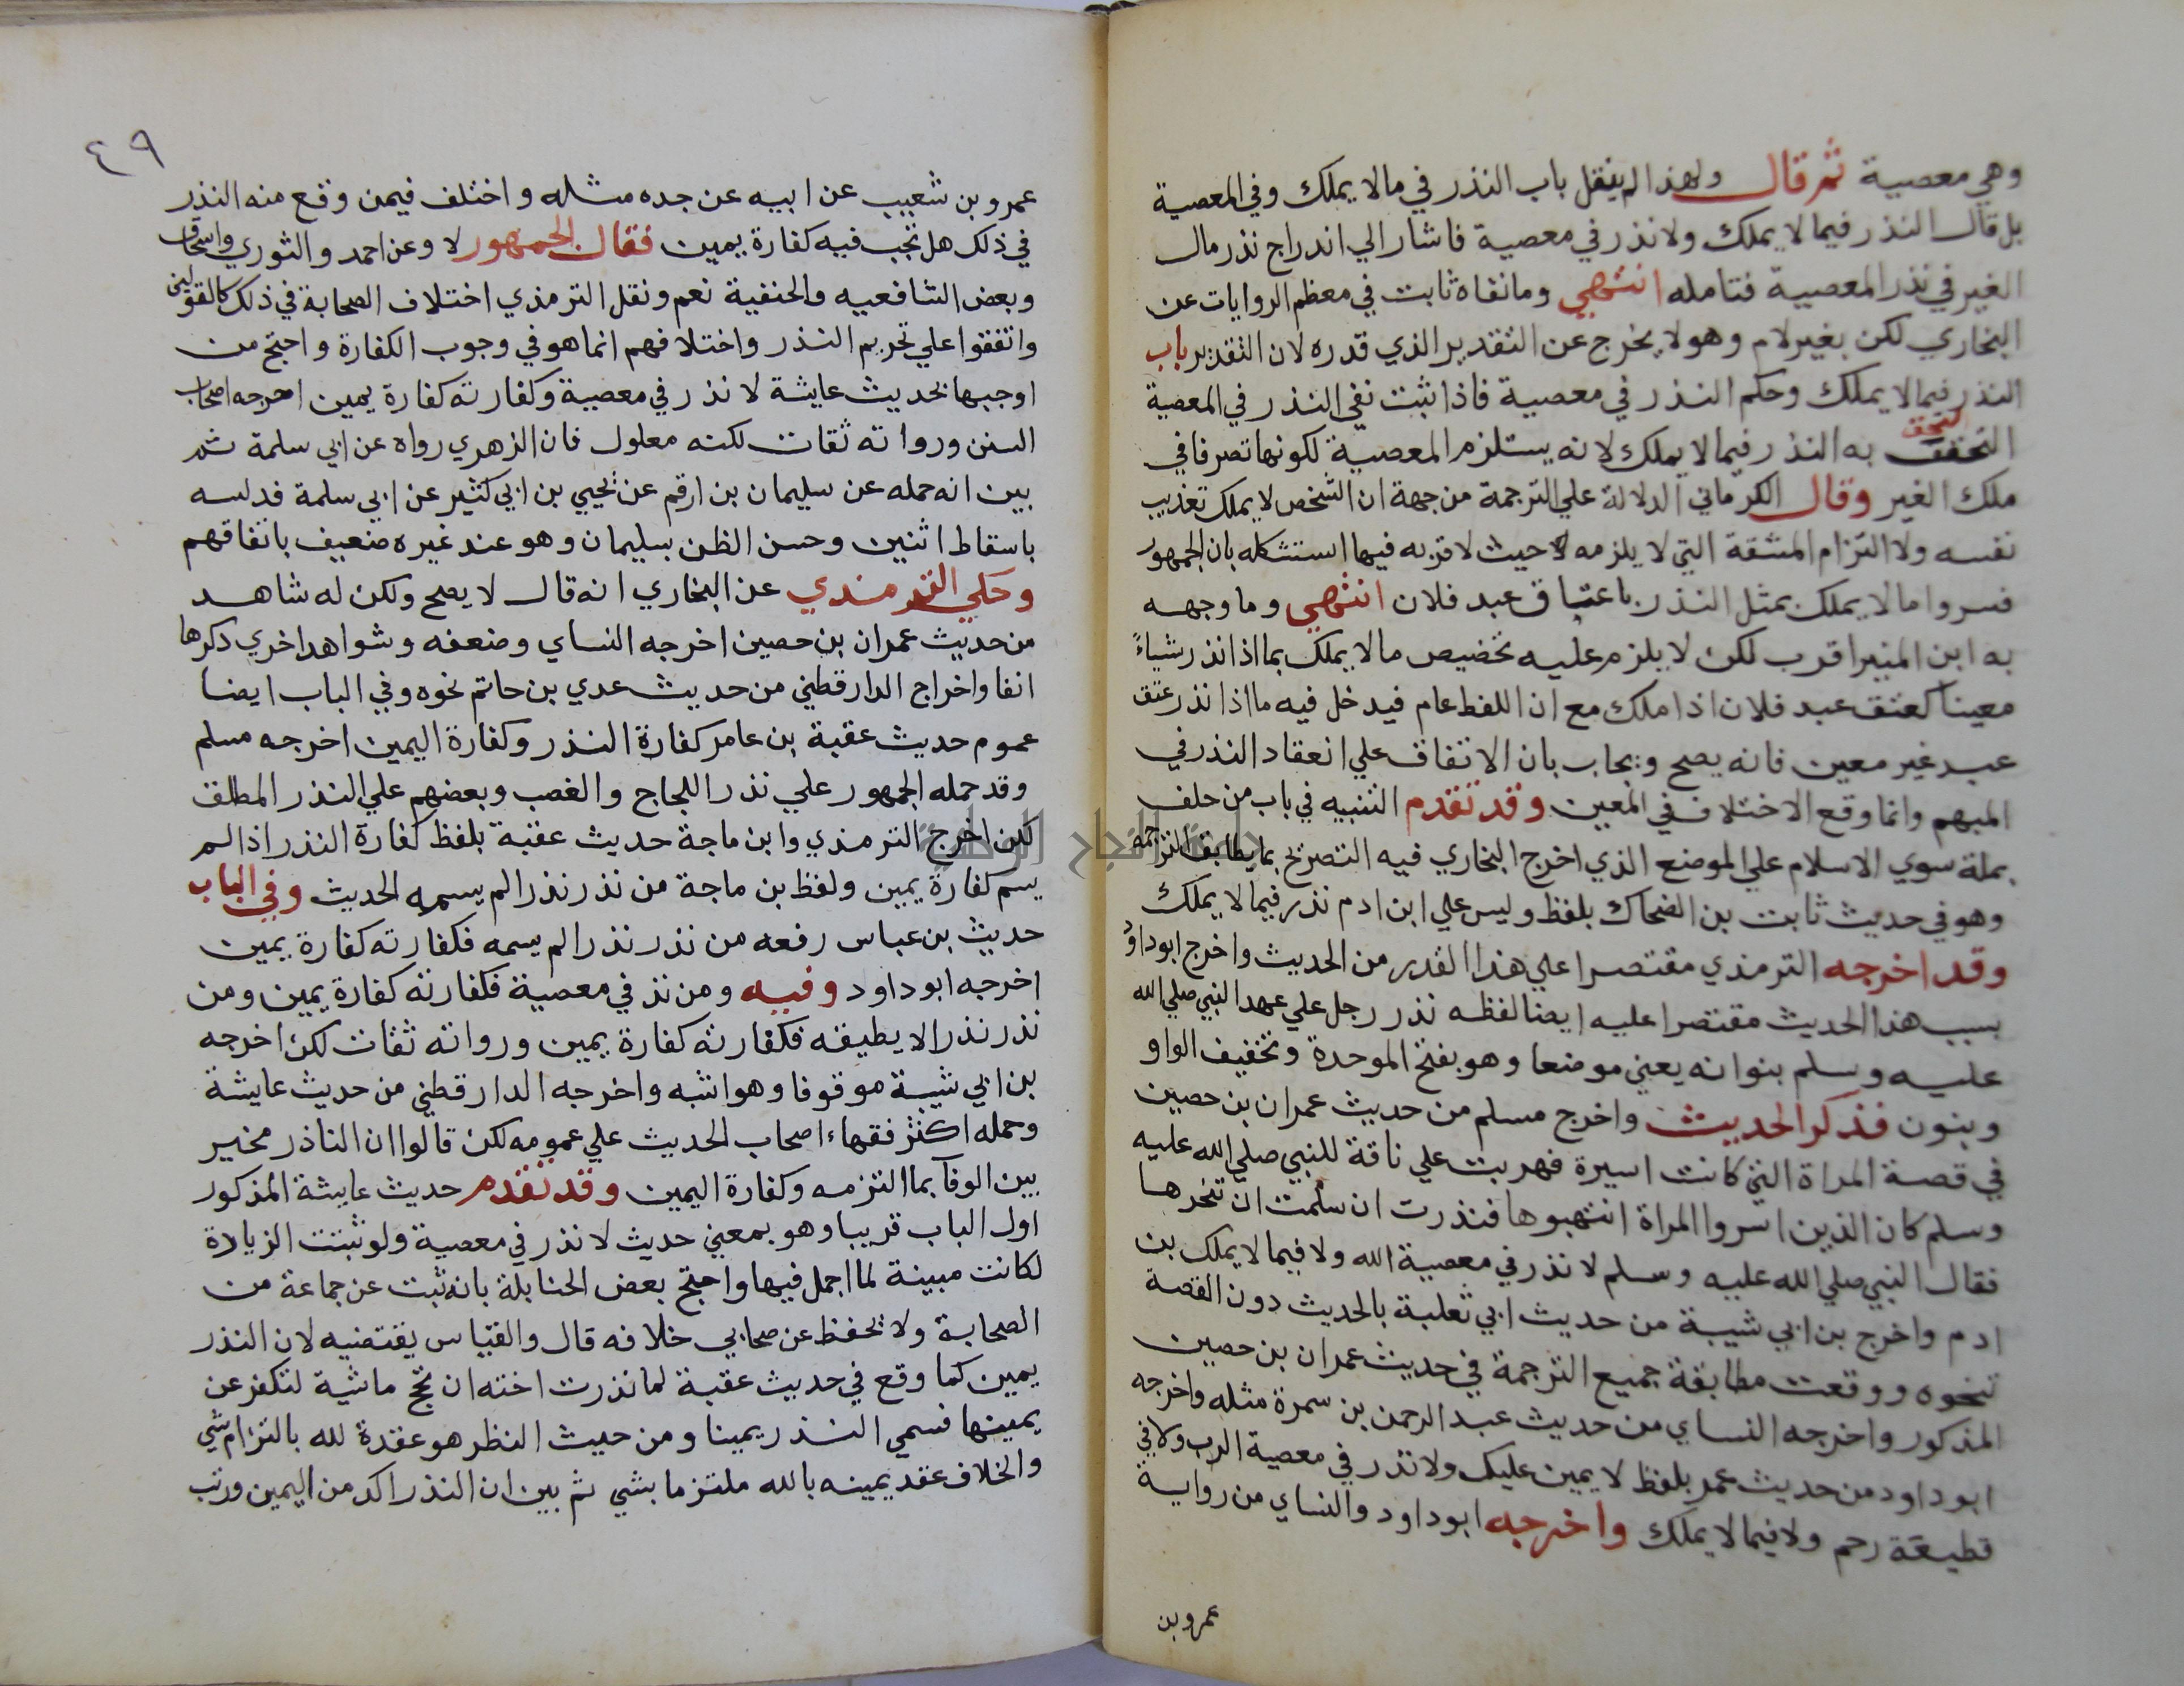 وهي معصية ثم قال ولهذا لم يقل باب النذر في ما لا يملك وفي المعصية
بل قال النذر فيما لا يملك ولا نذر في معصية فاشار الي اندراج نذر مال
الغير في نذر المعصية فتامله انتهي وما نفاه ثابت في معظم الروايات عن
البخاري لكن بغير لام وهو لا يخرج عن التقدير الذي قدره لان التقدير باب
النذر فيما لا يملك وحكم النذر في معصية فاذا ثبت نفي النذر في المعصية
التحقق به النذر فيما لا يملك لانه يستلزم المعصية لكونها تصرفا في
ملك الغير وقال الكرماني الدلالة علي الترجمة من جهة ان الشخص لا يملك تعذيب
نفسه ولا التزام المشقة التي لا يلزمه حيث لا قربه فيها استشكله بان الجمهور
فسروا ما لا يملك بمثل النذر باعتاق عبد فلان انتهي وما وجهه
به ابن المنير اقرب لكن لا يلزم عليه تخصيص ما لا يملك بما اذا نذر شياءً
معينا كعتق عبد فلان اذا ملك مع ان اللفظ عام فيدخل فيه ما اذا نذر عتق
عبد غير معين فانه يصح ويجاب بان الاتفاق علي انعقاد النذر في
المبهم وانما وقع الاختلاف في المعين وقد تقدم التنبيه في باب من حلف
بملة سوي الاسلام علي الموضع الذي اخرج البخاري فيه التصريح بما يطابق الترجمة
وهو في حديث ثابت بن الضحاك بلفظ وليس علي ابن ادم نذر فيما لا يملك
وقد اخرجه الترمذي مقتصرا علي هذا القدر من الحديث واخرج ابو داود
بسبب هذا الحديث مقتصرا عليه ايضا لفظه نذر رجل علي عهد النبي صلي الله
عليه وسلم ببوانه يعني موضعا وهو بفتح الموحدة وتخفيف الواو
وبنون فذكر الحديث واخرج مسلم من حديث عمران بن حصين
في قصة المراة التي كانت اسيرة فهربت علي ناقة للنبي صلي الله عليه
وسلم كان الذين اسروا المراة انتهبوها فنذرت ان سلمت ان تنحرها
فقال النبي صلي الله عليه وسلم لا نذر في معصية الله ولا فيما لا يملك بن
ادم واخرج بن ابي شيبة من حديث ابي ثعلبة بالحديث دون القصة
نحوه ووقعت مطابقة جميع الترجمة في حديث عمران بن حصين
المذكور واخرجه النساي من حديث عبد الرحمن بن سمرة مثله واخرجه
ابو داود من حديث عمر بلفظ لا يمين عليك ولا نذر في معصية الرب ولا في
قطيعة رحم ولا فيما لا يملك واخرجه ابو داود والنساي من رواية
عمرو بن
٤٩
عمرو بن شعيب عن ابيه عن جده مثله واختلف فيمن وقع منه النذر
في ذلك هل تجب فيه كفارة يمين فقال الجمهور لا وعن احمد والثوري واسحاق
وبعض الشافعيه والحنفية نعم ونقل الترمذي اختلاف الصحابة في ذلك كالقولين
واتفقوا علي تحريم النذر واختلافهم انما هو في وجوب الكفارة واحتج من
اوجبها بحديث عايشة لا نذر في معصية وكفارته كفارة يمين اخرجه اصحاب
السنن ورواته ثقات لكنه معلول فان الزهري رواه عن ابي سلمة ثم
بين انه حمله عن سليمان بن ارقم عن يحيي بن ابي كثير عن ابي سلمة فدلسه
باسقاط اثنين وحسن الظن بسليمان وهو عند غيره ضعيف باتفاقهم
وحكي الترمذي عن البخاري انه قال لا يصح ولكن له شاهد
من حديث عمران بن حصين اخرجه النساي وضعفه وشواهد اخري ذكرها
انفا واخراج الدارقطني من حديث عدي بن حاتم نحوه وفي الباب ايضا
عموم حديث عقبة بن عامر كفارة النذر وكفارة اليمين اخرجه مسلم
وقد حمله الجمهور علي نذر اللجاج والغصب وبعضهم علي النذر المطلق
لكن اخرج الترمذي وابن ماجة حديث عقبة بلفظ كفارة النذر اذا لم
يسم كفارة يمين ولفظ بن ماجة من نذر نذرا لم يسمه الحديث وفي الباب
حديث بن عباس رفعه من نذر نذرا لم يسمه فكفارته كفارة يمين
اخرجه ابو داود وفيه ومن نذر في معصية فكفارته كفارة يمين ومن
نذر نذرا لا يطيقه فكفارته كفارة يمين ورواته ثقات لكن اخرجه
بن ابي شيبة موقوفا وهو اشبه واخرجه الدارقطني من حديث عايشة
وحمله اكثر فقهاء اصحاب الحديث علي عمومه لكن قالوا ان الناذر مخير
بين الوفآ بما التزمه وكفارة اليمين وقد تقدم حديث عايشة المذكور
اول الباب قريبا وهو بمعني حديث لا نذر في معصية ولو ثبتت الزيادة
لكانت مبينة لما اجمل فيها واحتج بعض الحنابلة بانه ثبت عن جماعة من
الصحابة ولا يحفظ عن صحابي خلافه قال والقياس يقتضيه لان النذر
يمين كما وقع في حديث عقبة لما نذرت اخته ان تحج ماشية لتكفر عن
يمينها فسمي النذر يمينا ومن حيث النظر هو عقدة لله بالتزام شي
والخلاف عقد يمينه بالله ملتزما بشي ثم بين ان النذر اكد من اليمين ورتب